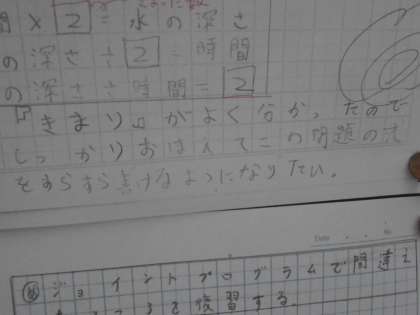 間×2=水の深さ
の深さ÷2=時間
の深さ÷時間=2
「きまり」がよく分か、たので
しっかりおぼえてこの問題の式
をすらすら書けるようになりたい。
Date ・ ・ No.
ジョイントプログラムで間違え
を復習する。